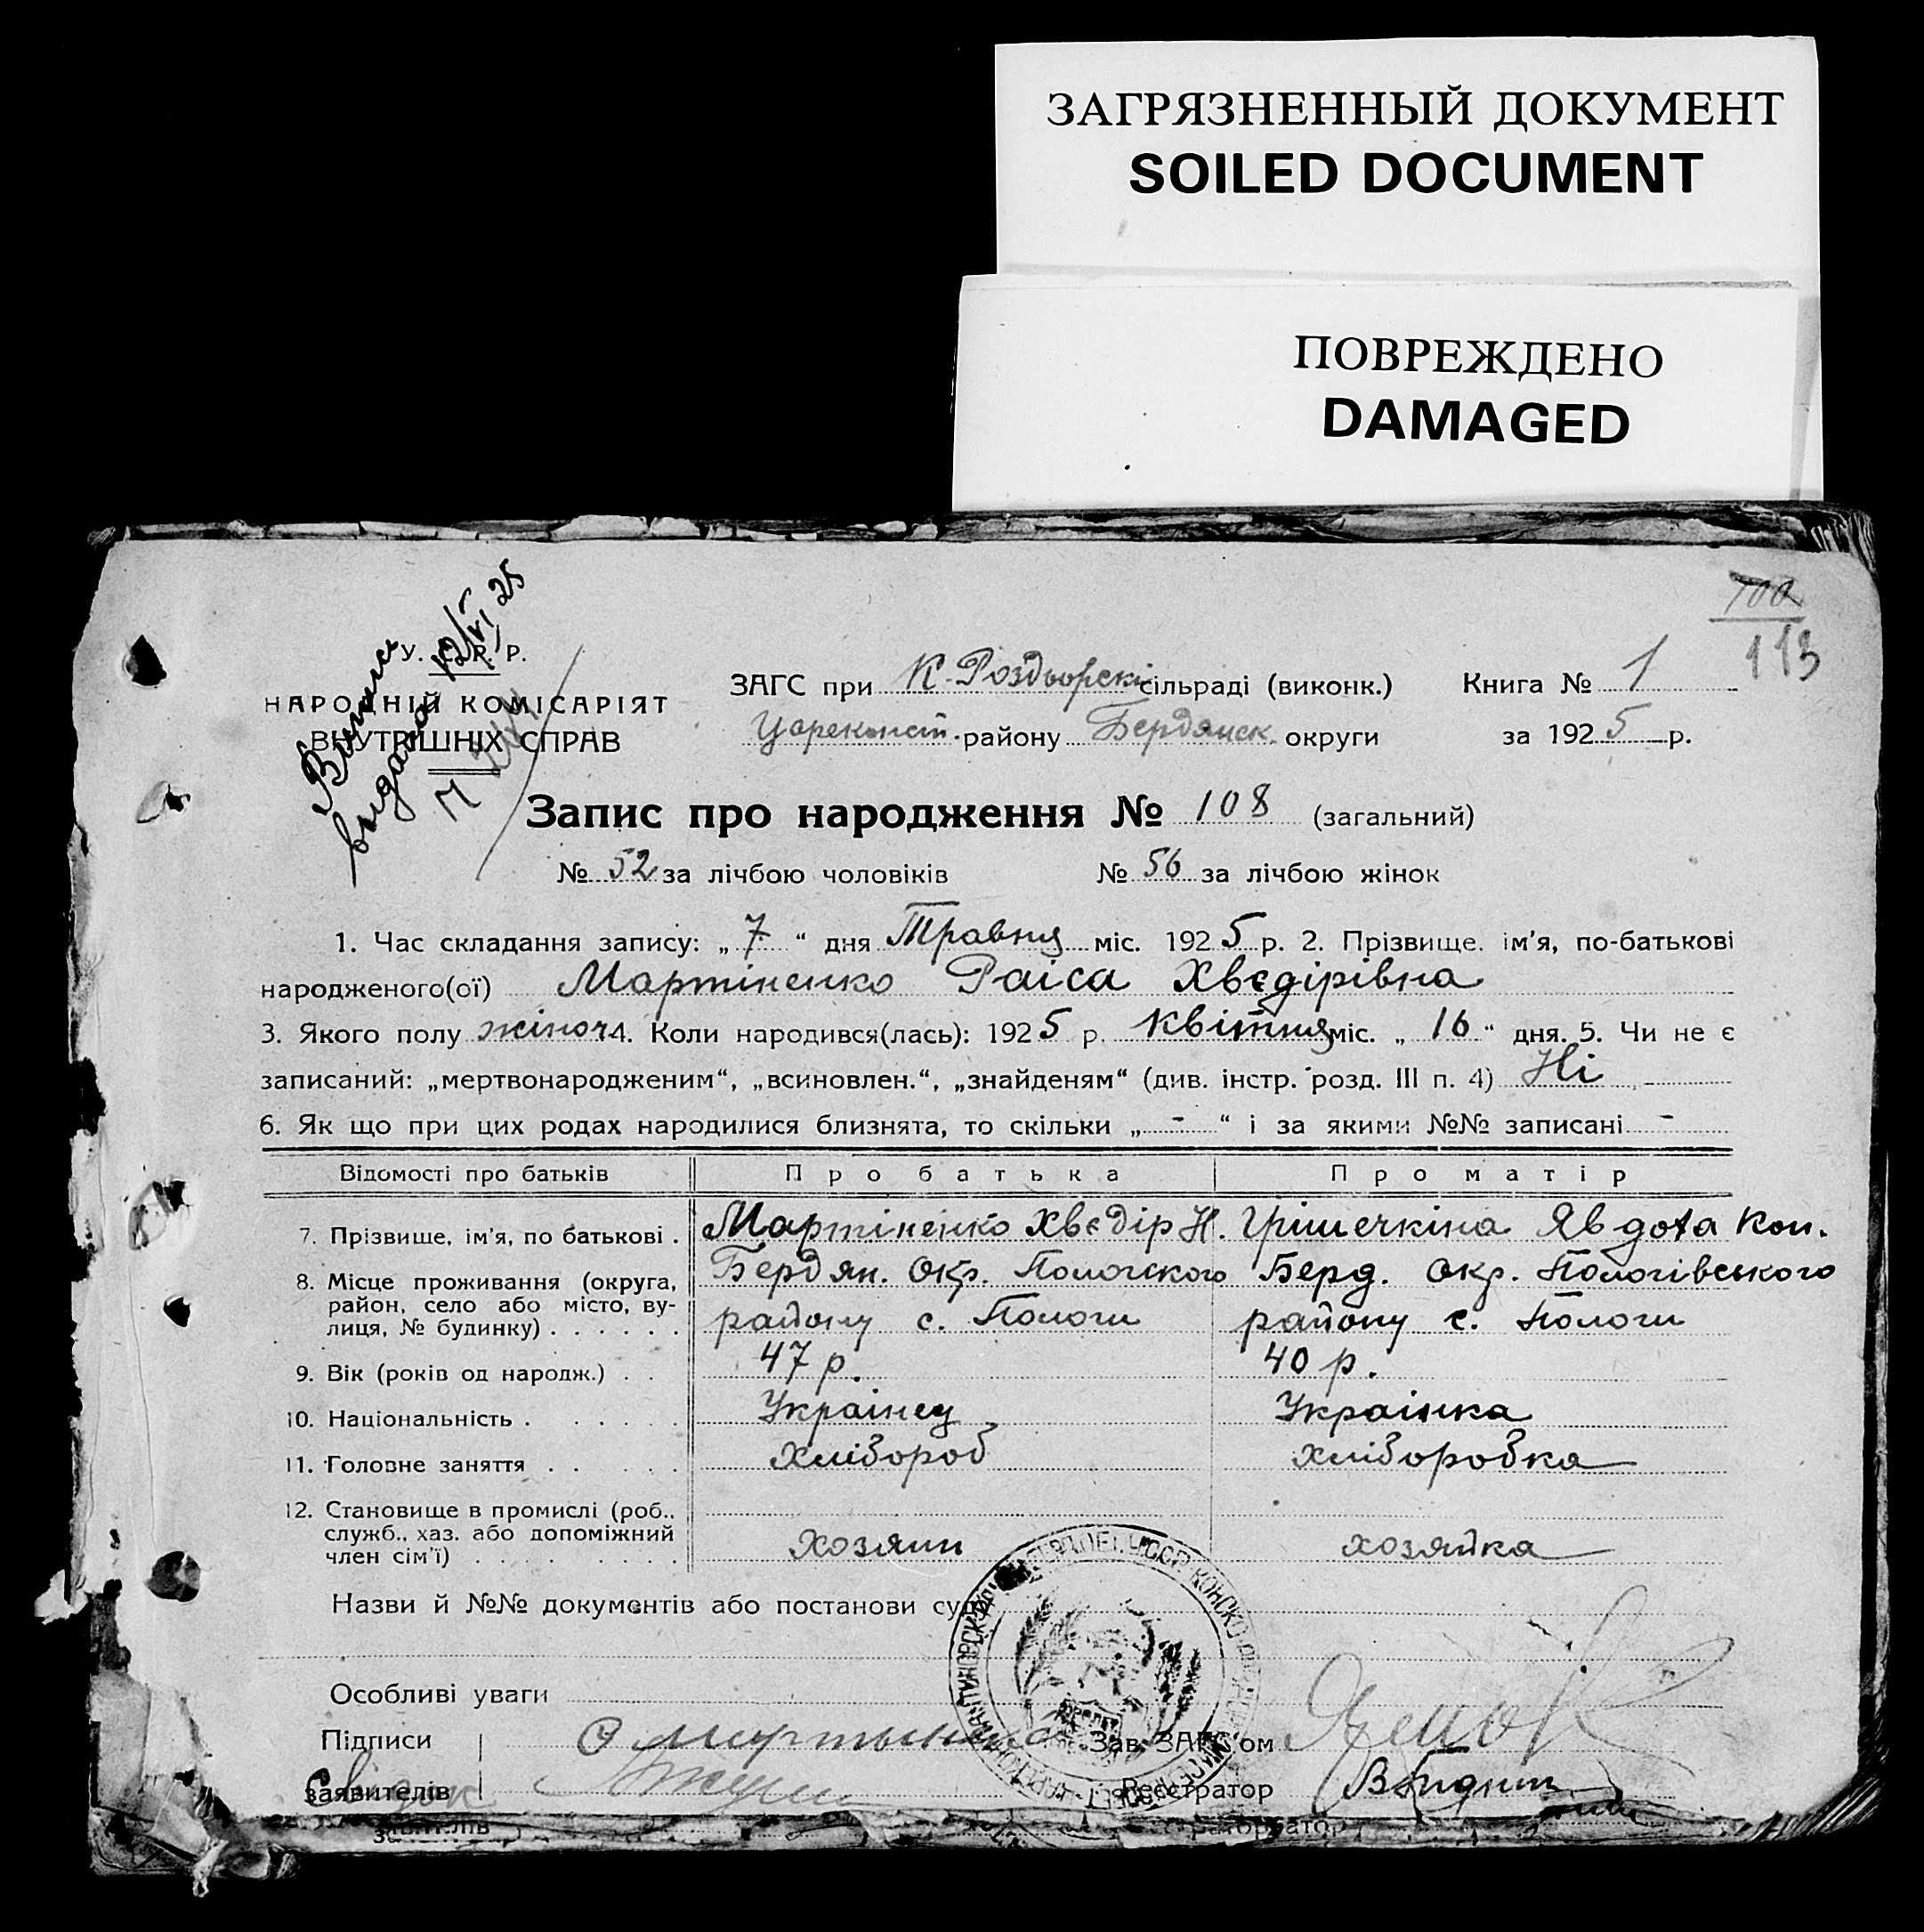 ЗАГРЯЗНЕННЫЙ ДОКУМЕНТ
SOILED DOCUMENT
ПОВРЕЖДЕНО
DAMAGED
700
113
Випись
видано
У. С. Р. Р.
НАРОДНІЙ КОМІСАРІЯТ
ВНУТРІШНІХ СПРАВ
ЗАГС при К-Роздорскі сільраді (виконк.) Книга № 1
Цареконст. району Бердянск. округи за 1925 р.
Запис про народження № 108 (загальний)
№ 52 за лічбою чоловіків № 56 за лічбою жінок
1. Час складання запису: „7“ дня Травня міс. 1925 р. 2. Прізвище. ім'я, по-батькові
народженого(ої) Мартіненко Раіса Хвєдірівна
3. Якого полу жіноч 4. Коли народився(лась): 1925 р. Квітня міс. „16“ дня. 5. Чи не є
записаний: „мертвонародженим“, „всиновлен.“, „знайденям“ (див. інстр. розд. III п. 4) Ні
6. Як що при цих родах народилися близнята, то скільки „-“ і за якими №№ записані -
Відомості про батьків Про батька Про матір
7. Прізвище, ім'я, по батькові . Мартіненко Хвєдір Н. Грішечкіна Явдота Кон.
8. Місце проживання (округа, Бердян. Окр. Пологского Берд. Окр. Пологівського
район, село або місто, ву-
лиця, № будинку) . . . . . . району с. Пологи району с. Пологи
9. Вік (років од народж.) . . 47 р. 40 р.
10. Національність . . . . . . Украінец Украінка
11. Головне заняття . . . . . Хлібороб хліборобка
12. Становище в промислі (роб.,
служб., хаз. або допоміжний
член сім'ї) . . . . . . . . хозяин хозяйка
Назви й №№ документів або постанови суду
Особливі уваги
Підписи Зав. ЗАГС'ом
заявителів Реєстратор